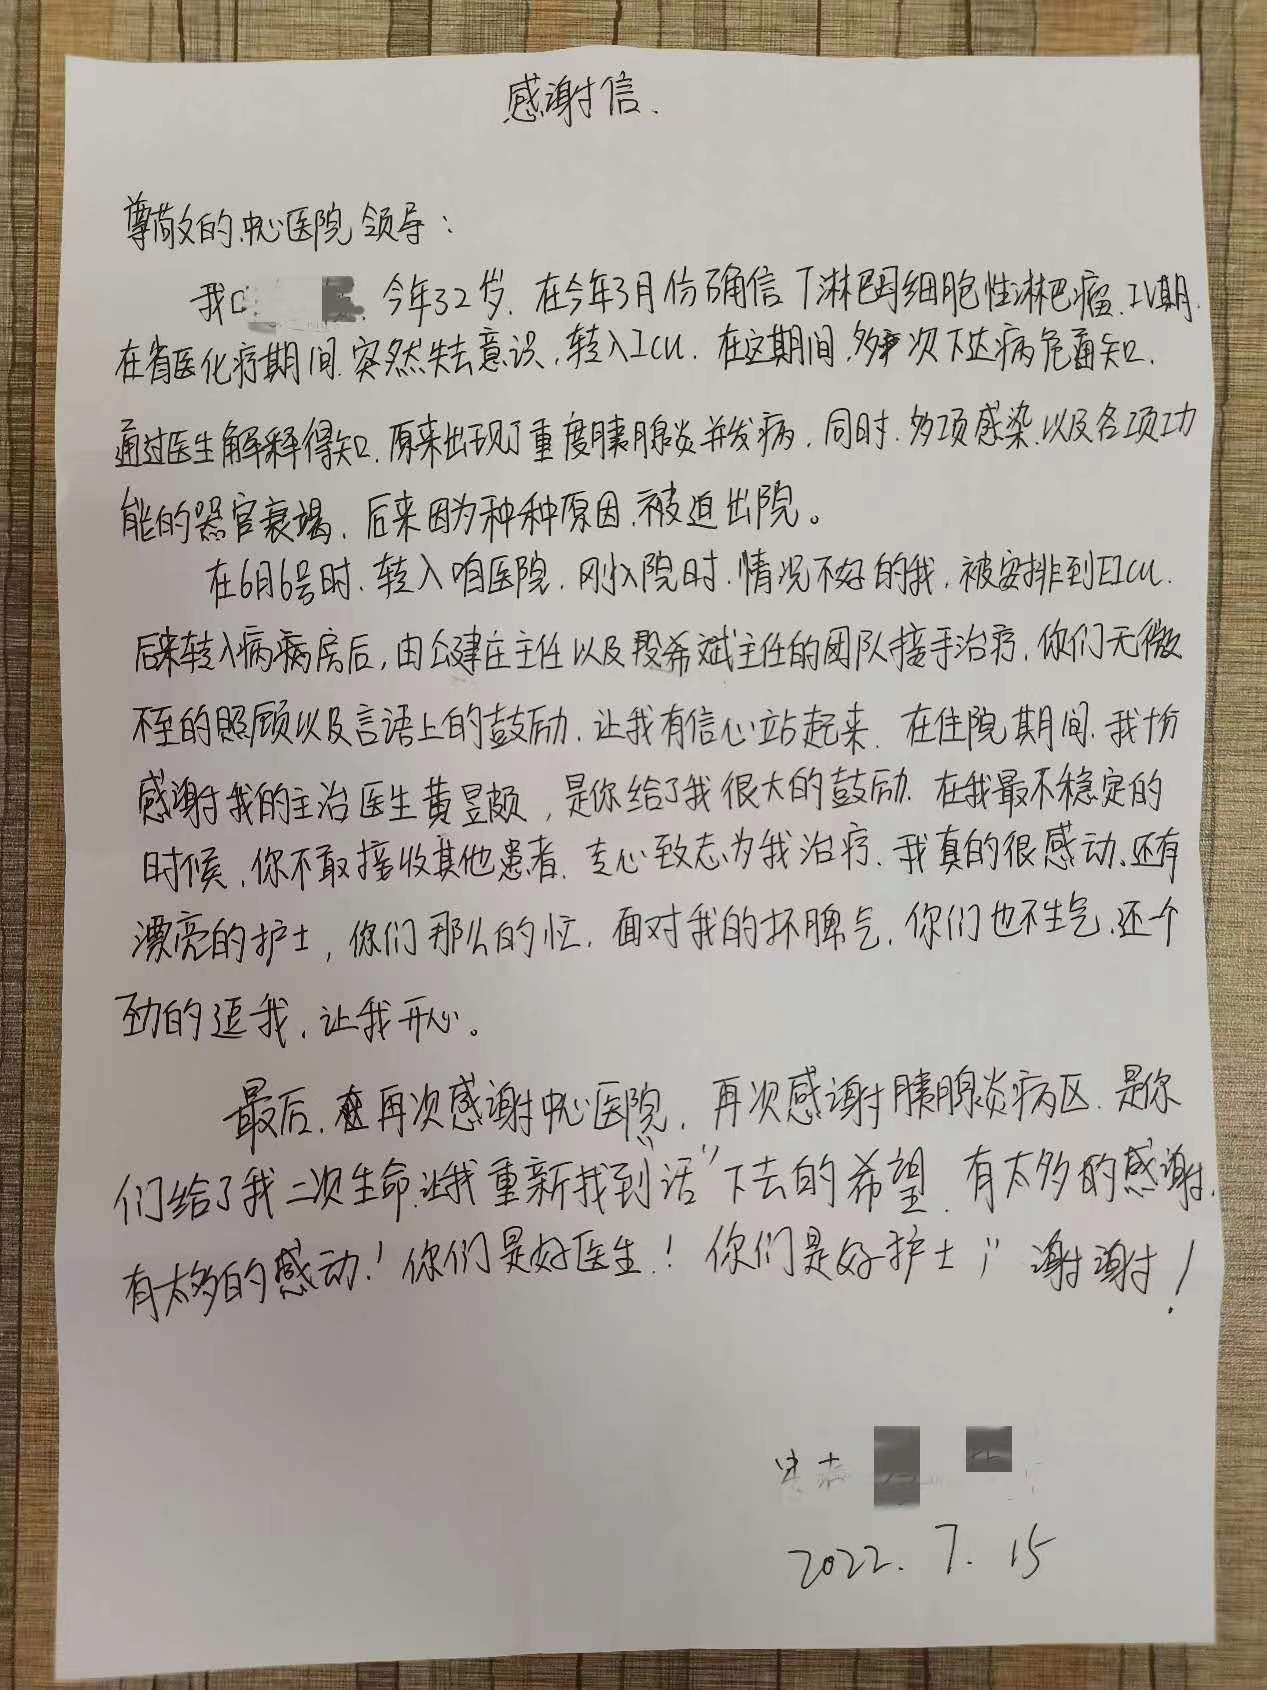 感谢信.
尊敬的中心医院领导：
我 今年32岁.在今年3月份确信T淋巴母细胞性淋巴瘤.IV期.
在省医化疗期间.突然失去意识,转入ICU.在这期间,多次下达病危通知.
通过医生解释得知.原来出现了重度胰腺炎并发病,同时.多项感染.以及各项功
能的器官衰竭,后来因为种种原因.被迫出院。
在6月6号时.转入咱医院.刚入院时.情况不好的我,被安排到EICU.
后来转入病病房后,由公建庄主任以及段希斌主任的团队接手治疗.你们无微
不至的照顾以及言语上的鼓励.让我有信心站起来.在住院期间.我十份
感谢我的主治医生黄昱颇,是你给了我很大的鼓励.在我最不稳定的
时候,你不敢接收其他患者.专心致志为我治疗.我真的很感动.还有
漂亮的护士,你们那么的忙.面对我的坏脾气.你们也不生气.还一个
劲的逗我.让我开心。
最后.再次感谢中心医院,再次感谢胰腺炎病区.是你
们给了我二次生命.让我重新找到“活”下去的希望.有太多的感谢.
有太多的感动!你们是好医生!你们是好护士!谢谢!
2022.7.15